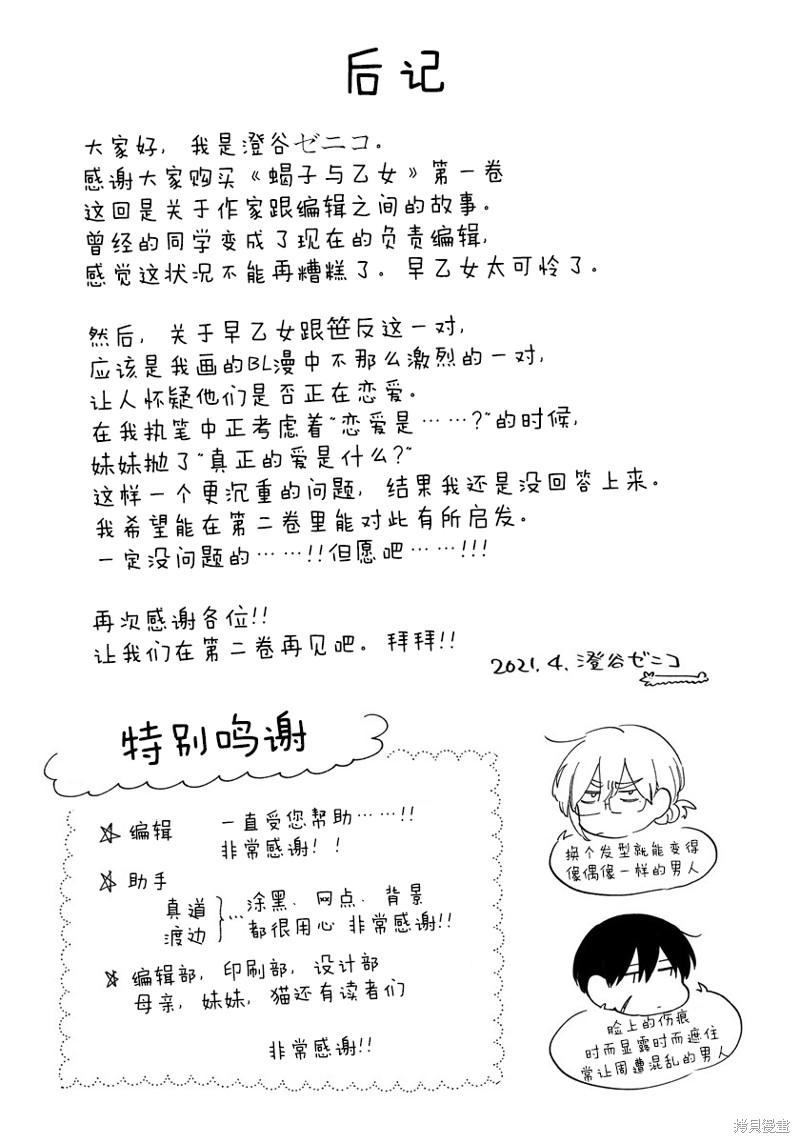 后记
大家好，我是澄谷ゼニコ。
感谢大家购买《蝎子与乙女》第一卷
这回是关于作家跟编辑之间的故事。
曾经的同学变成了现在的负责编辑，
感觉这状况不能再糟糕了。早乙女太可怜了。
然后，关于早乙女跟笹反这一对，
应该是我画的BL漫中不那么激烈的一对，
让人怀疑他们是否正在恋爱。
在我执笔中正考虑着"恋爱是……?"的时候，
妹妹抛了"真正的爱是什么?"
这样一个更沉重的问题，结果我还是没回答上来。
我希望能在第二卷里能对此有所启发。
一定没问题的……!!但愿吧……!!!
再次感谢各位!!
让我们在第二卷再见吧。拜拜!!
2021.4.澄谷ゼニコ
特别鸣谢
☆ 编辑 一直受您帮助……!!
非常感谢！！
☆ 助手
真道
渡边
…涂黑、网点、背景
都很用心 非常感谢!!
☆ 编辑部，印刷部，设计部
母亲，妹妹，猫还有读者们
非常感谢!!
换个发型就能变得
像偶像一样的男人
脸上的伤痕
时而显露时而遮住
常让周遭混乱的男人
拷贝漫畫